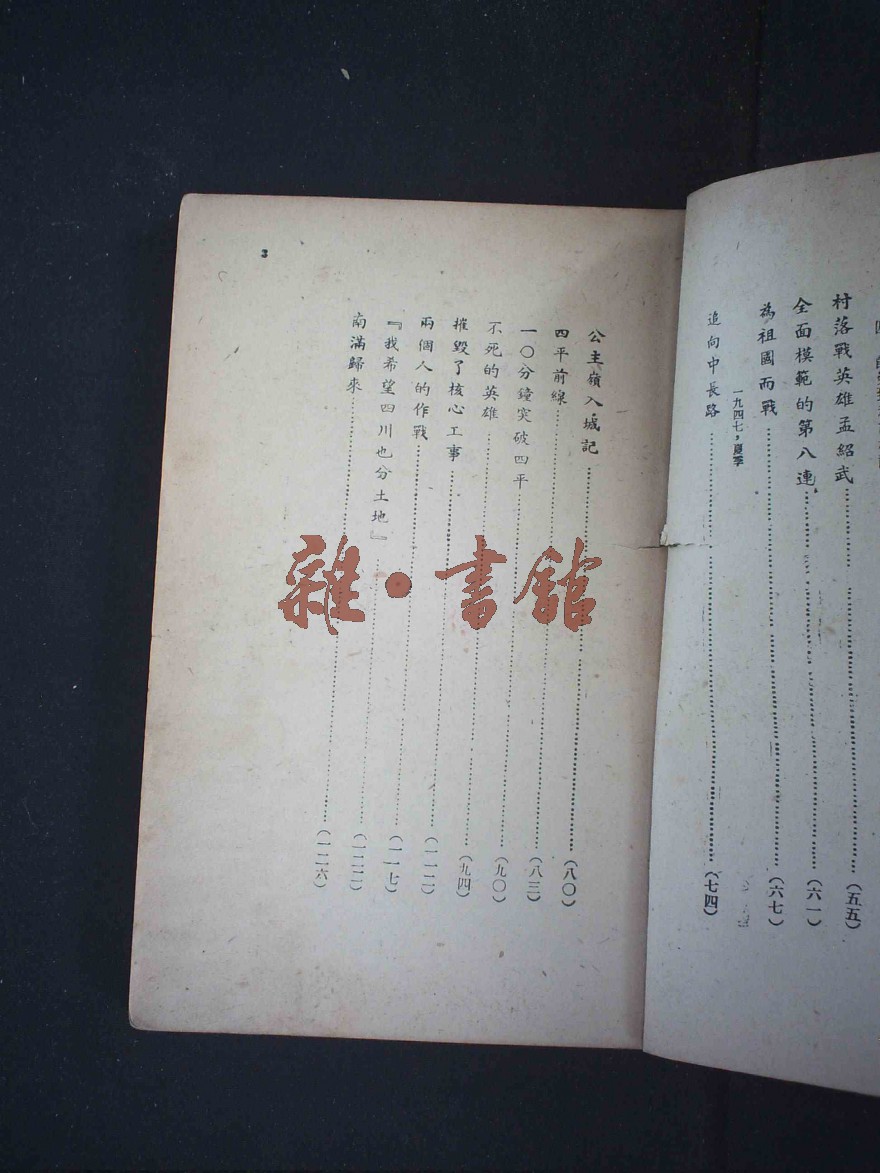 村落戰英雄孟紹武……(五五)
全面模範的第八連……(六一)
為祖國而戰……(六七)
一九四七,夏季
追向中長路……(七四)
公主嶺入城記……(八〇)
四平前線……(八三)
一〇分鐘突破四平……(九〇)
不死的英雄……(九四)
摧毀了核心工事……(一一二)
兩個人的作戰……(一一七)
『我希望四川也分土地』……(一二二)
南滿歸來……(一二六)
3
雜·書館